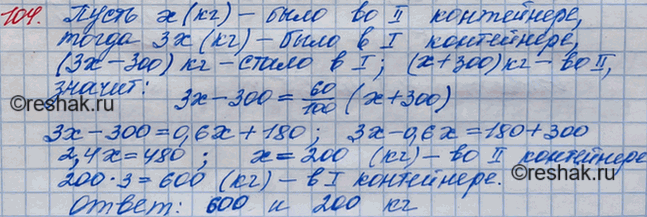 104. Пусть x (кг) – было во II контейнере,
тогда 3x (кг) – было в I контейнере,
(3x – 300) кг – стало в I ; (x + 300) кг – во II,
значит: 3x – 300 = 60/100 (x + 300)
3x – 300 = 0,6x + 180 ; 3x – 0,6x = 180 + 300
2,4x = 480 ; x = 200 (кг) – во II контейнере
200 · 3 = 600 (кг) – в I контейнере.
Ответ: 600 и 200 кг
©reshak.ru